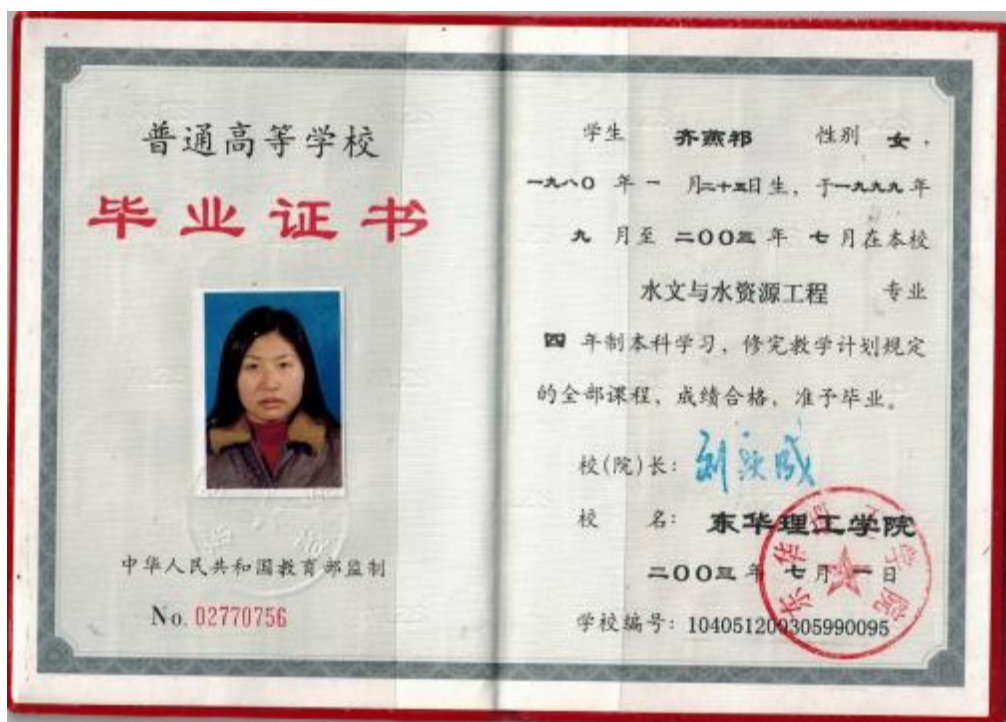 普通高等学校
毕业证书
中华人民共和国教育部监制
No. 02770756
学生 齐燕祁 性别 女，
一九八〇 年 一 月二十五日生，于一九九九年
九 月至 二〇〇三 年 七 月在本校
水文与水资源工程 专业
四 年制本科学习，修完教学计划规定
的全部课程，成绩合格，准予毕业。
校(院)长：
校 名：东华理工学院
二〇〇三 年 七 月 一 日
学校编号：104051200305990095
东华理工学院